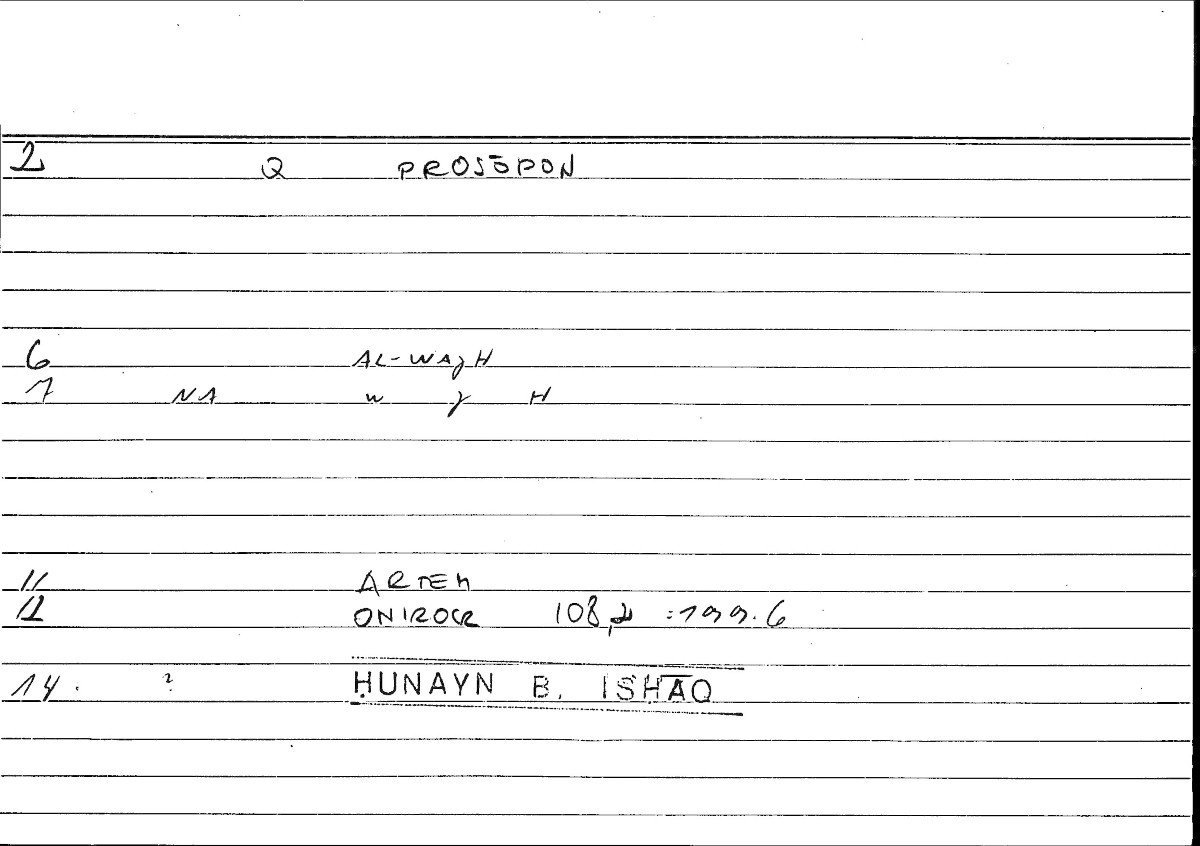 2 Q PROSŌPON
6 AL-WAJH
7 NA W J H
11 ARTEM
12 ONIROCR 108, :199.6
14. ? ḤUNAYN B. ISḤĀQ